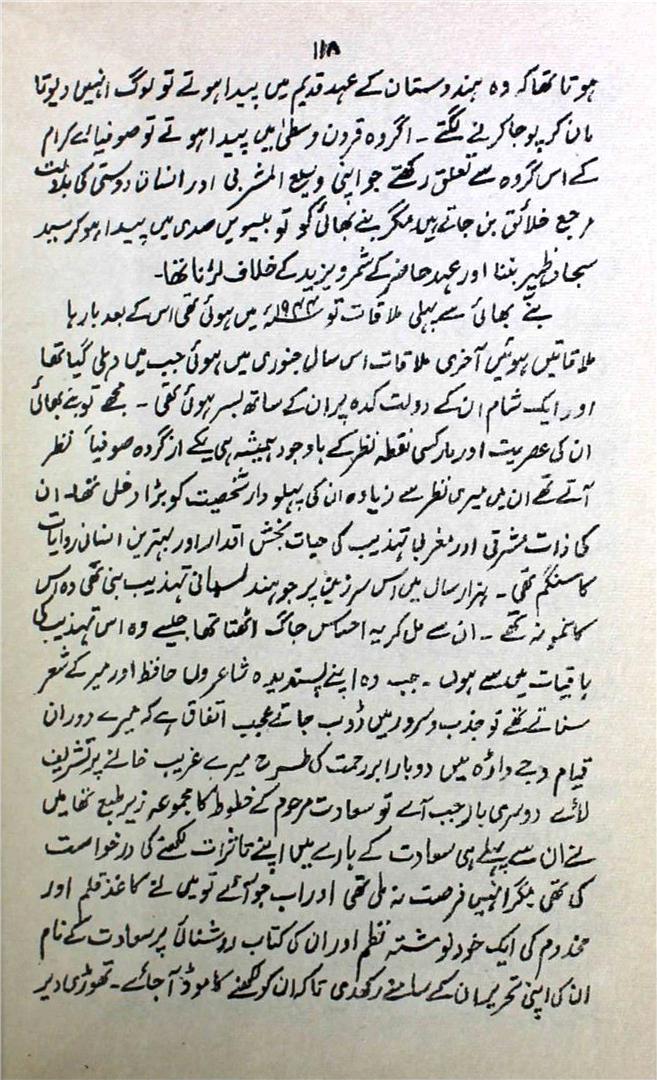 ۱۱۸
ہوتا تھا کہ وہ ہندوستان کے عہد قدیم میں پیدا ہوتے تو لوگ انہیں دیوتا
مان کر پوجا کرنے لگتے ۔ اگر وہ قرون وسطیٰ میں پیدا ہوتے تو صوفیائے کرام
کے اس گروہ سے تعلق رکھتے جو اپنی وسیع المشربی اور انسان دوستی کی بدولت
مرجع خلائق بن جاتے ہیں مگر بنے بھائی کو تو بیسویں صدی میں پیدا ہو کر سید
سجاد ظہیر بننا اور عہد حاضر کے شمر و یزید کے خلاف لڑنا تھا۔
بنے بھائی سے پہلی ملاقات تو ۱۹۴۴ء میں ہوئی تھی اس کے بعد بارہا
ملاقاتیں ہوئیں آخری ملاقات اس سال جنوری میں ہوئی جب میں دہلی گیا تھا
اور ایک شام ان کے دولت کدہ پر ان کے ساتھ بسر ہوئی تھی ۔ مجھے تو بنے بھائی
ان کی عصریت اور مارکسی نقطہ نظر کے باوجود ہمیشہ ہی یکے از گروہ صوفیا نظر
آتے تھے ان میں میری نظر سے زیادہ ان کی پہلو دار شخصیت کو بڑا دخل تھا۔ ان
کی ذات مشرقی اور مغربی تہذیب کی حیات بخش اقدار اور بہترین انسانی روایات
کا سنگم تھی ۔ ہزار سال میں اس سرزمین پر جو ہند لمسانی تہذیب بنی تھی وہ اس
کا نمونہ تھے ۔ ان سے مل کر یہ احساس جاگ اٹھتا تھا جیسے وہ اس تہذیب کی
باقیات میں سے ہوں ۔ جب وہ اپنے پسندیدہ شاعروں حافظ اور میر کے شعر
سناتے تھے تو جذب و سرور میں ڈوب جاتے عجیب اتفاق ہے کہ میرے دوران
قیام وجے واڑہ میں دوبار ابر رحمت کی طرح میرے غریب خانے پر تشریف
لائے دوسری بار جب آئے تو سعادت مرحوم کے خطوط کا مجموعہ زیر طبع تھا میں
نے ان سے پہلے ہی سعادت کے بارے میں اپنے تاثرات لکھنے کی درخواست
کی تھی مگر انہیں فرصت نہ ملی تھی اور اب جو آئے تو میں نے کاغذ قلم اور
مخدوم کی ایک خود نوشتہ نظم اور ان کی کتاب روشنائی پر سعادت کے نام
ان کی اپنی تحریر ان کے سامنے رکھدی تا کہ ان کو لکھنے کا موڈ آ جائے ۔ تھوڑی دیر